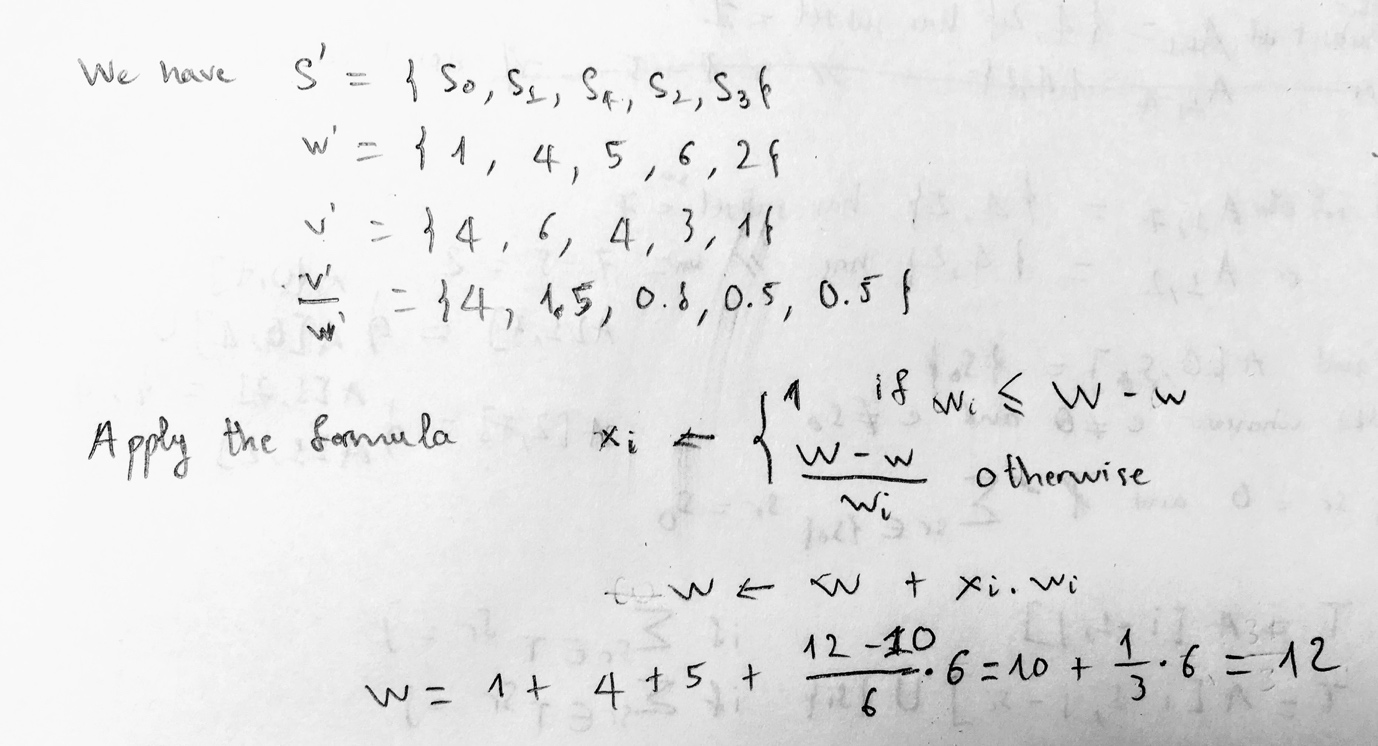 We have S' = { S0, S1, S4, S2, S3 {
w' = { 1, 4, 5, 6, 2 {
v' = { 4, 6, 4, 3, 1 {
v'/w' = { 4, 1.5, 0.8, 0.5, 0.5 }
Apply the formula xi ← { 1 if wi ≤ W - w
(W - w)/wi otherwise
w ← w + xi . wi
w = 1 + 4 + 5 + (12 - 10)/6 . 6 = 10 + 1/3 . 6 = 12